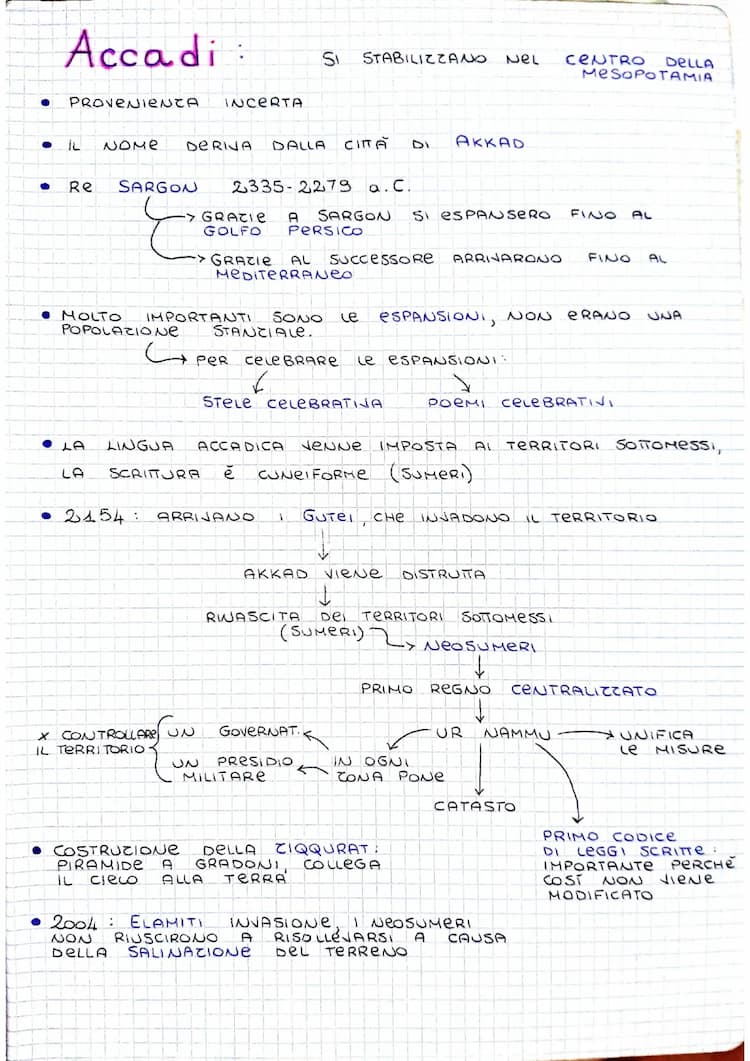 Accadi: SI STABILIZZANO NEL CENTRO DELLA
MESOPOTAMIA
• PROVENIENZA INCERTA
• IL NOME DERIVA DALLA CITTÀ DI AKKAD
• RE SARGON 2335-2279 a.C.
→ GRAZIE A SARGON SI ESPANSERO FINO AL
GOLFO PERSICO
→ GRAZIE AL SUCCESSORE ARRIVARONO FINO AL
MEDITERRANEO
• MOLTO IMPORTANTI SONO LE ESPANSIONI, NON ERANO UNA
POPOLAZIONE STANZIALE.
→ PER CELEBRARE LE ESPANSIONI:
STELE CELEBRATIVA POEMI CELEBRATIVI
• LA LINGUA ACCADICA VENNE IMPOSTA AI TERRITORI SOTTOMESSI,
LA SCRITTURA È CUNEIFORME (SUMERI)
• 2154: ARRIVANO I GUTEI, CHE INVADONO IL TERRITORIO
↓
AKKAD VIENE DISTRUTTA
↓
RINASCITA DEI TERRITORI SOTTOMESSI
(SUMERI) → NEOSUMERI
↓
PRIMO REGNO CENTRALIZZATO
↓
UR NAMMU → UNIFICA
LE MISURE
IN OGNI
ZONA PONE
UN GOVERNAT.
UN PRESIDIO
MILITARE
x CONTROLLARE
IL TERRITORIO
CATASTO
PRIMO CODICE
DI LEGGI SCRITTE:
IMPORTANTE PERCHÉ
COSÍ NON VIENE
MODIFICATO
• COSTRUZIONE DELLA ZIQQURAT:
PIRAMIDE A GRADONI, COLLEGA
IL CIELO ALLA TERRA
• 2004: ELAMITI INVASIONE, I NEOSUMERI
NON RIUSCIRONO A RISOLLEVARSI A CAUSA
DELLA SALINAZIONE DEL TERRENO